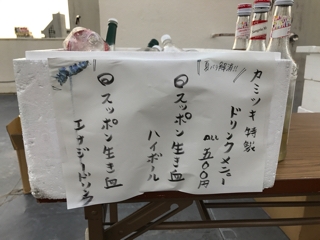 カミツキ特製
ドリンクメニー
ALL 五〇〇円
◎スッポン生き血
ハイボール
◎スッポン生き血
エナジードリンク